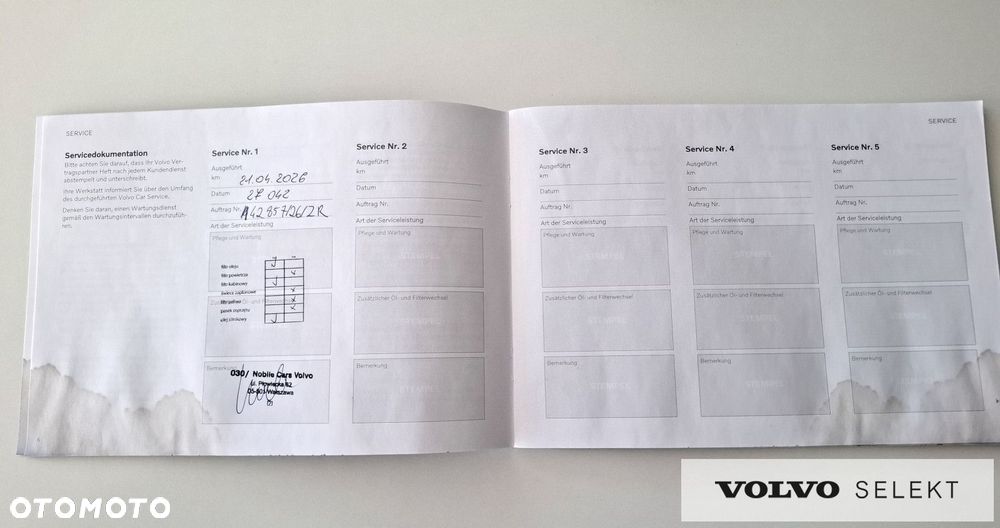 SERVICE
Servicedokumentation
Bitte achten Sie darauf, dass Ihr Volvo Ver-
tragspartner Heft nach jedem Kundendienst
abstempelt und unterschreibt.
Ihre Werkstatt informiert Sie über den Umfang
des durchgeführten Volvo Car Service.
Denken Sie daran, einen Wartungsdienst
gemäß den Wartungsintervallen durchzufüh-
ren.
Service Nr. 1
Ausgeführt
km 21.04.2026
Datum 27 042
Auftrag Nr. A42857/26/ZR
Art der Serviceleistung
Pflege und Wartung
filtr oleju
filtr powietrza
filtr kabinowy
świece zapłonowe
filtr paliwa
pasek napędu
olej silnikowy
Zusätzlicher Öl- und Filterwechsel
Bemerkung
030/ Nobile Cars Volvo
ul. Płowiecka 62
Warszawa
Service Nr. 2
Ausgeführt
km
Datum
Auftrag Nr.
Art der Serviceleistung
Pflege und Wartung
STEMPEL
Zusätzlicher Öl- und Filterwechsel
STEMPEL
Bemerkung
STEMPEL
SERVICE
Service Nr. 3
Ausgeführt
km
Datum
Auftrag Nr.
Art der Serviceleistung
Pflege und Wartung
STEMPEL
Zusätzlicher Öl- und Filterwechsel
STEMPEL
Bemerkung
STEMPEL
Service Nr. 4
Ausgeführt
km
Datum
Auftrag Nr.
Art der Serviceleistung
Pflege und Wartung
STEMPEL
Zusätzlicher Öl- und Filterwechsel
STEMPEL
Bemerkung
STEMPEL
Service Nr. 5
Ausgeführt
km
Datum
Auftrag Nr.
Art der Serviceleistung
Pflege und Wartung
STEMPEL
Zusätzlicher Öl- und Filterwechsel
STEMPEL
Bemerkung
STEMPEL
OTOMOTO
VOLVO SELEKT